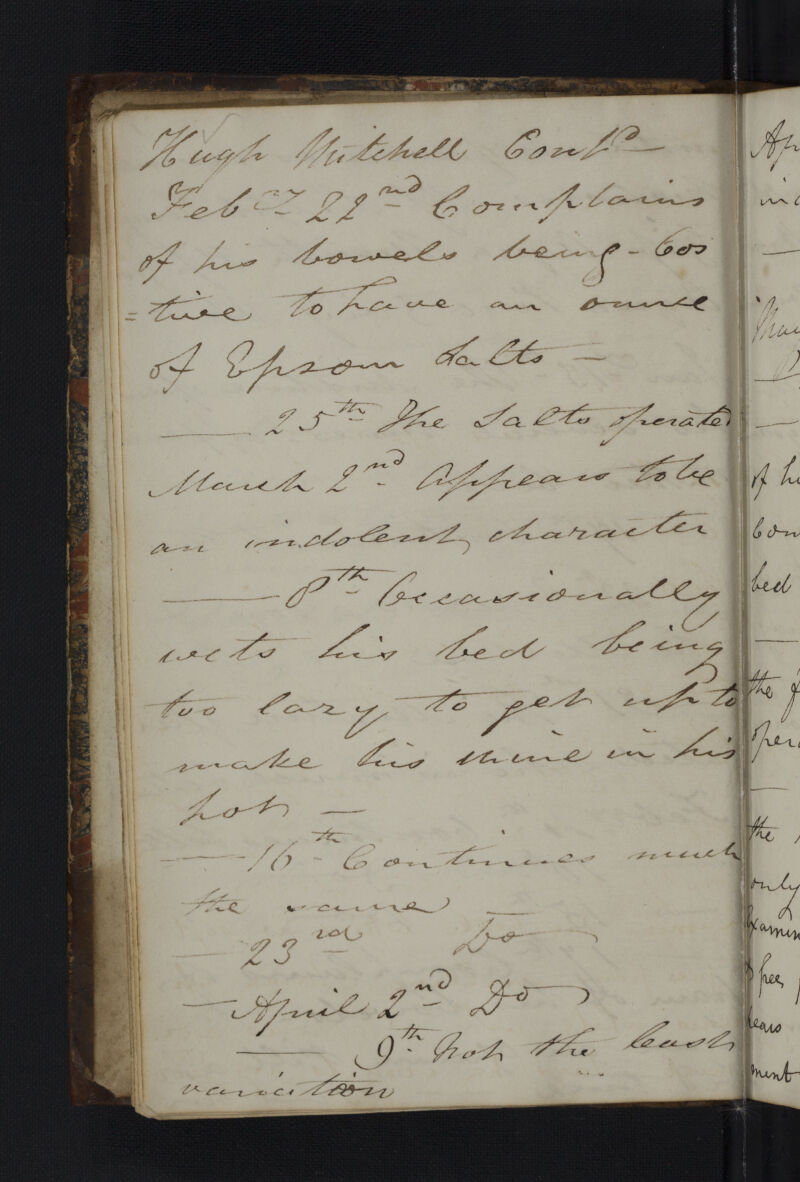 Hugh Mitchell Contd
Feby 22nd Complains
of his bowels being Cos
=tive to have an ounce
of Epsom Salts —
— 25th The Salts operated
March 2nd Appears to be
an indolent character
— 8th Occasionally
wets his bed being
too lazy to get up to
make his urine in his
pot —
— 16th Continues much
the same
— 23rd Do
— April 2nd Do
— 9th Not the least
variation
of hi
bed
—
the
—
the
only
ment